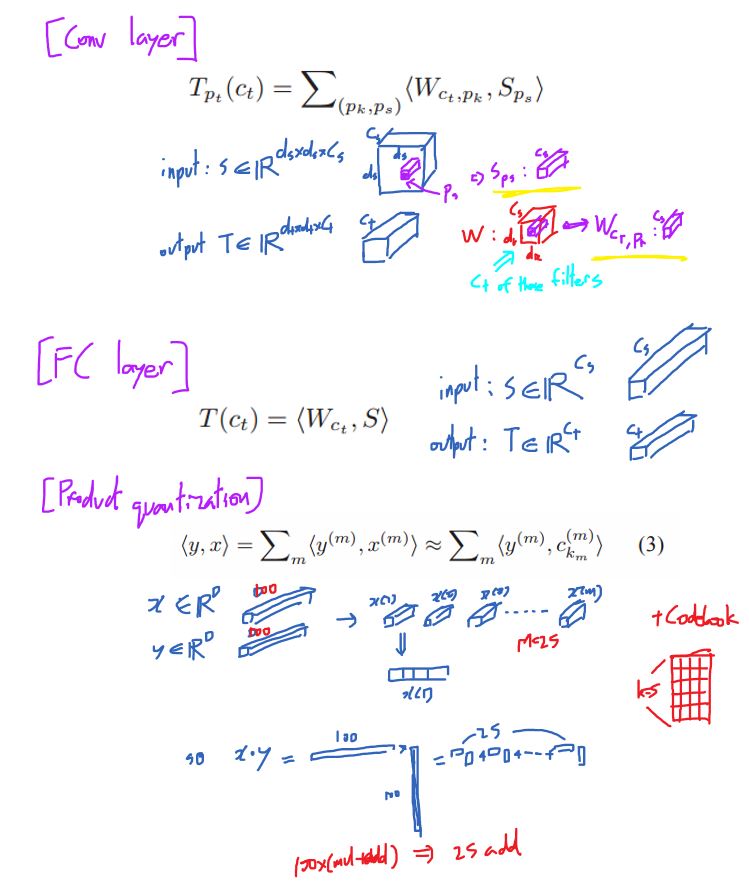 [Conv layer]
T_{p_t}(c_t) = ∑_{(p_k,p_s)} ⟨W_{c_t,p_k}, S_{p_s}⟩
input : S ∈ ℝ^{d_s×d_s×c_s} C_s d_s d_s P_s ⇒ S_{p_s} : C_s
output T ∈ ℝ^{d_t×d_t×C_t} C_t W : C_s d_k d_k ↔ W_{c_t,p_k} : C_s
C_t of those filters
[FC layer]
input : S ∈ ℝ^{C_s} C_s
T(c_t) = ⟨W_{c_t}, S⟩
output : T ∈ ℝ^{C_t} C_t
[Product quantization]
⟨y, x⟩ = ∑_m ⟨y^{(m)}, x^{(m)}⟩ ≈ ∑_m ⟨y^{(m)}, c_{k_m}^{(m)}⟩ (3)
x ∈ ℝ^D 100 → x(1) x(2) x(3) ...... x(m)
y ∈ ℝ^D 100 M=25 + Codebook
x(1) k=5
so x·y = 100 × 100 = 25 + + --- +
100×(mul+add) ⇒ 25 add